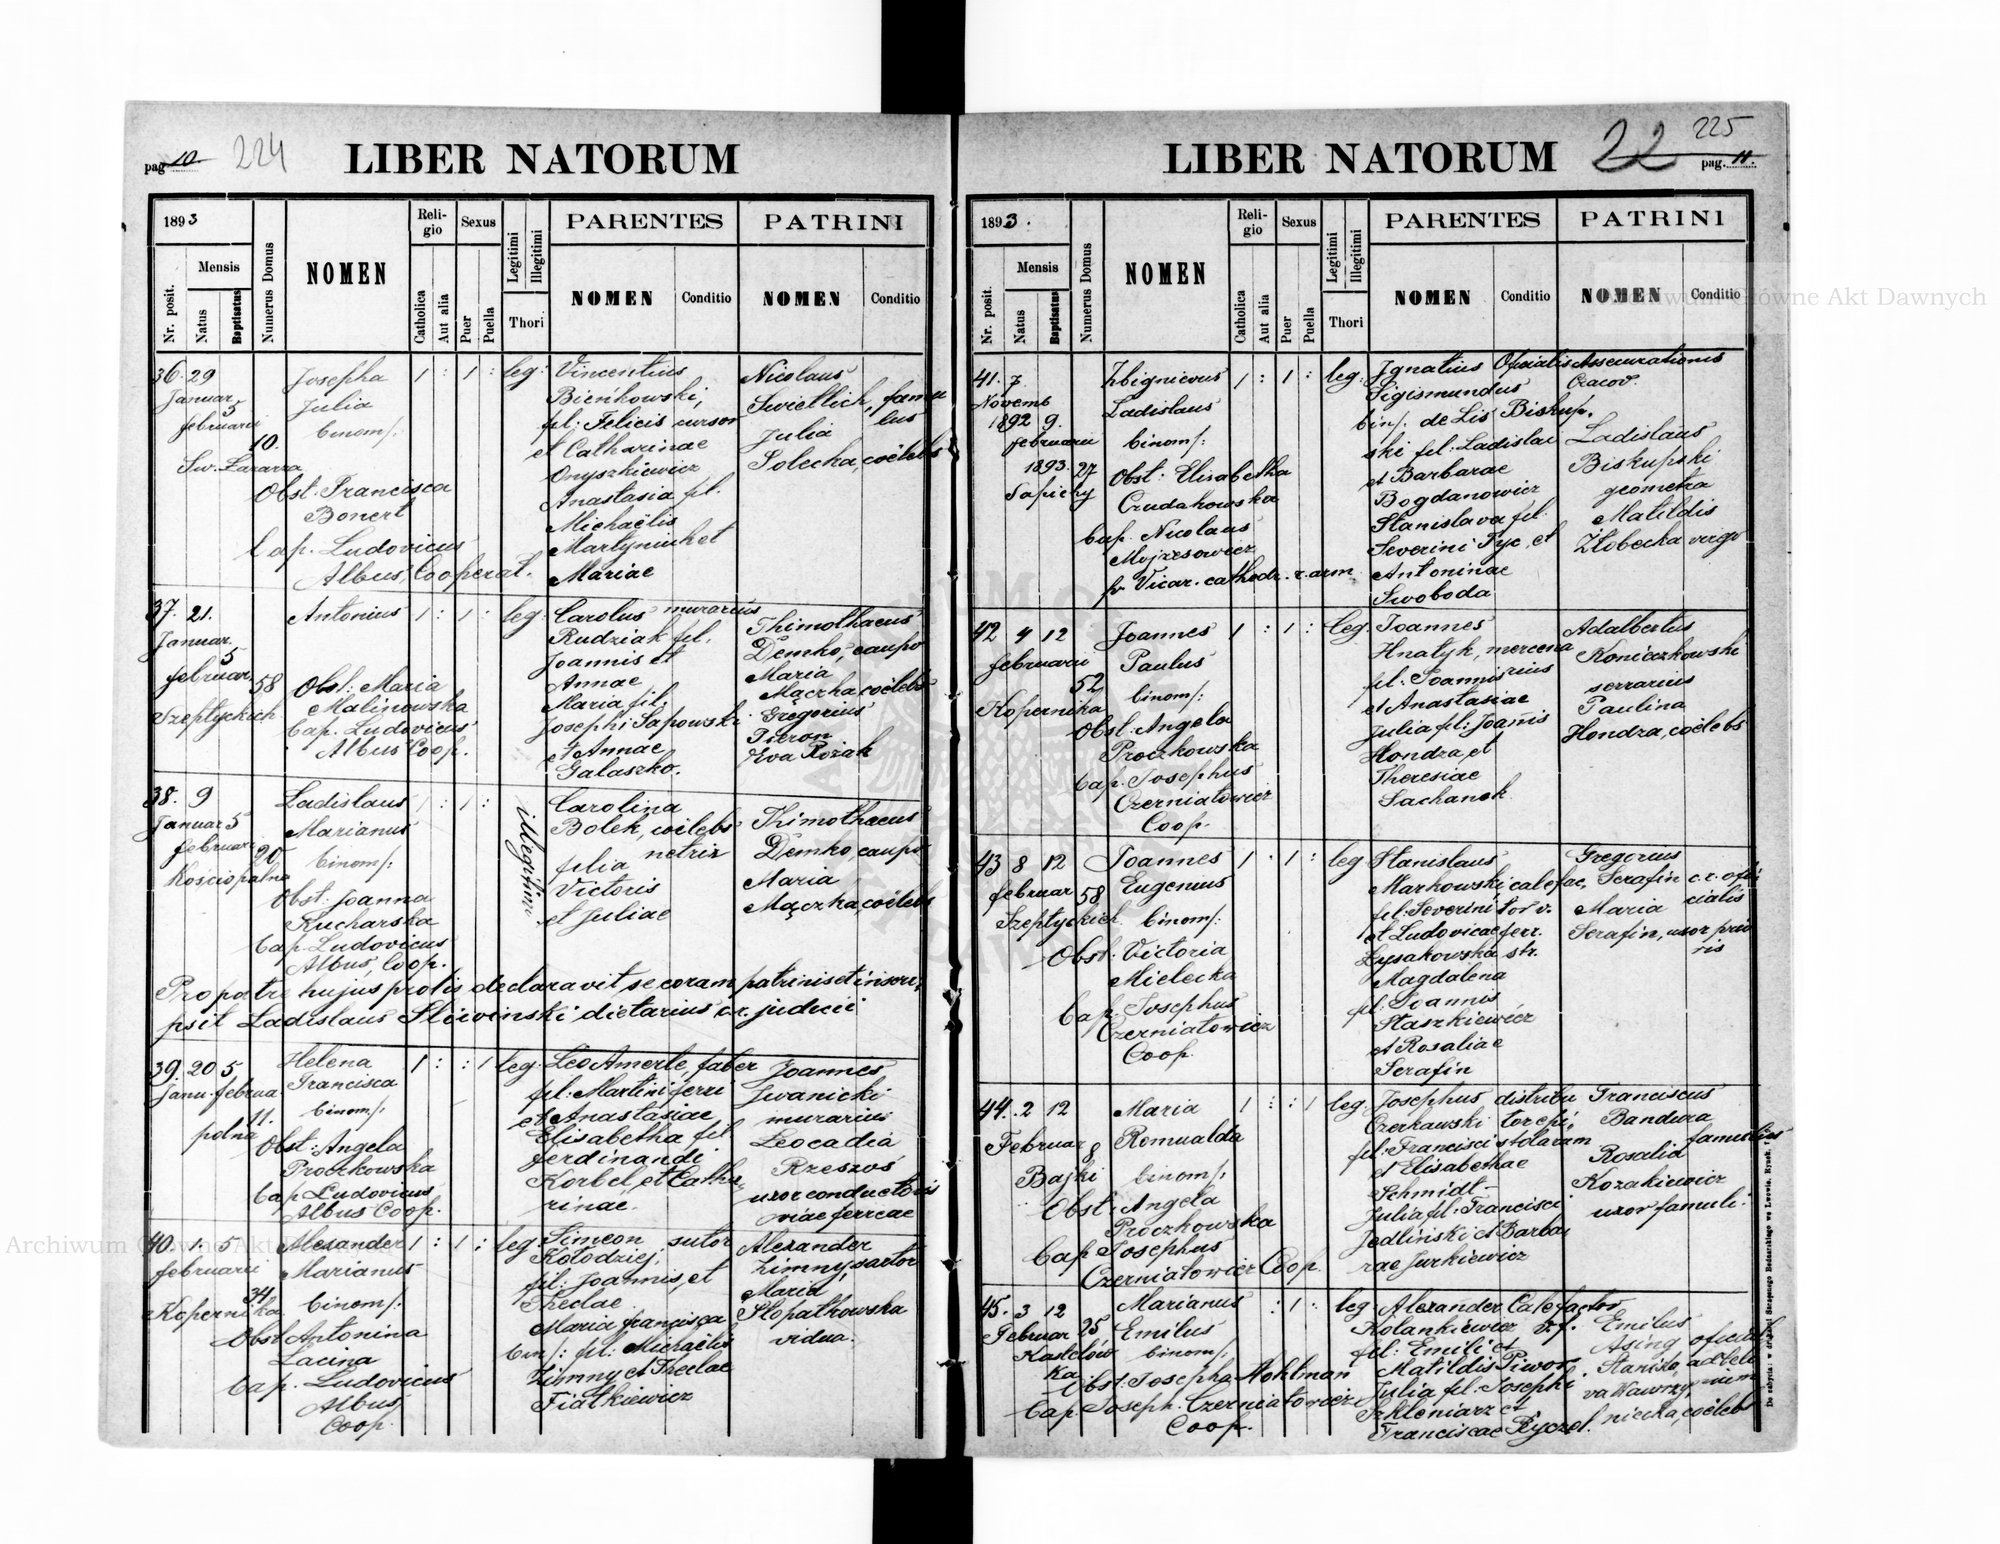 pag. 10. 224
LIBER NATORUM
1893
Nr. posit.
Mensis
Natus
Baptisatus
Numerus Domus
NOMEN
Reli-
gio
Catholica
Aut alia
Sexus
Puer
Puella
Legitimi
Illegitimi
Thori
PARENTES
NOMEN
Conditio
PATRINI
NOMEN
Conditio
36. 29
Januar,
5
februarii
10.
Sw. Lazarza
Josepha
Julia
binom/:
Obst: Francisca
Bonert
Cap. Ludovicus
Albus, Cooperat.
1 : 1 : leg:
Vincentius
Bieńkowski,
fil: Felicis cursor
et Catharinae
Onyszkiewicz
Anastasia fil.
Michaëlis
Martyniuk et
Mariae
Nicolaus
Swietlich, famu
lus
Julia
Solecka, coelebs
37. 21.
Januar.
5
februar.
58
Szeptyckich
Antonius
Obst: Maria
Malinowska
Cap. Ludovicus
Albus Coop.
1 : 1 : leg:
Carolus murarius
Rudziak fil.
Joannis et
Annae
Maria fil.
Josephi Sapowski
et Annae
Galaszko.
Thimothaeus
Demko, caupo
Maria
Mączka coelebs
Gregorius
Pieron
Eva Pożak
38. 9
Januar 5
februar.
20
Kosciopalna
Ladislaus
Marianus
binom/:
Obst: Joanna
Kucharska
Cap. Ludovicus
Albus, Coop.
1 : 1 :
illegitimi
Carolina
Bolek, coelebs
netrix
filia
Victoris
et Juliae
Thimothaeus
Demko, caupo
Maria
Mączka, coelebs
Pro patre hujus prolis declaravit se coram patrinis et inscri,
psit Ladislaus Sliwinski dietarius c.r. judicii
39. 20 5
Janu. februa.
11.
polna
Helena
Francisca
binom/:
Obst: Angela
Proczkowska
Cap. Ludovicus
Albus Coop.
1 : : 1 leg:
Leo Amerle, faber
fil: Martini ferri
et Anastasiae
Elisabetha fil.
Ferdinandi
Korbel, et Catha,
rinae.
Joannes
Iwanicki
murarius
Leocadia
Rzeszoś
uxor conductoris
viae ferreae
40. 1. 5
februarii
34.
Kopernika
Alexander
Marianus
binom/:
Obst Antonina
Lacina
Cap. Ludovicus
Albus
Coop.
1 : 1 : leg:
Simeon sutor
Kołodziej,
fil: Joannis, et
Theclae
Maria francisca
bin/: fil: Michaëlis
Zimny et Theclae
Fiałkiewicz
Alexander
Zimny, sartor
Maria
Słopatkowska
vidua.
22 225
pag. 11.
LIBER NATORUM
1893.
Nr. posit.
Mensis
Natus
Baptisatus
Numerus Domus
NOMEN
Reli-
gio
Catholica
Aut alia
Sexus
Puer
Puella
Legitimi
Illegitimi
Thori
PARENTES
NOMEN
Conditio
PATRINI
NOMEN
Conditio
41. 7
Novemb
1892 9.
februarii
1893. 27
Sapichy
Zbignievus
Ladislaus
binom/:
Obst: Elisabetha
Czudakowska
Cap. Nicolaus
Mojzesowicz
Vicar. cathedr. r. arm.
1 : 1 : leg:
Ignatius Oficialis Assecurationis
Sigismundus Cracov.
bin/. de Lis Biskup.
ski fil: Ladislai
et Barbarae
Bogdanowicz
Stanislava fil.
Severini Tyc, et
Antoninae
Swoboda
Ladislaus
Biskupski
geometra
Matildis
Złobecka virgo
42 4 12
februarii
52
Kopernika
Joannes
Paulus
binom/:
Obst: Angela
Proczkowska
Cap. Josephus
Czerniatowicz
Coop.
1 : 1 : leg:
Joannes
Hnatyk, mercena
rius
fil: Joannis
et Anastasiae
Julia fil: Joannis
Hondra, et
Theresiae
Sachanek
Adalbertus
Konieczkowski
serrarius
Paulina
Hondra, coelebs
43 8 12
februar 58
Szeptyckich
Joannes
Eugenius
binom/:
Obst. Victoria
Mielecka
Cap. Josephus
Czerniatowicz
Coop.
1 : 1 : leg
Stanislaus
Markowski, calefac,
fil: Severini tor v.
et Ludovicae ferr.
Łysakowska str.
Magdalena
fil: Joannis
Staszkiewicz
et Rosaliae
Serafin
Gregorius
Serafin c.r. ofi
cialis
Maria
Serafin, uxor prio
ris
44. 2 12
Februar 8
Bajki
Maria
Romualda
binom/:
Obst: Angela
Proczkowska
Cap Josephus
Czerniatowicz Coop.
1 : : 1 leg.
Josephus distribu
Czerkawski tor epi,
fil: Francisci stolarum
et Elisabethae
Schmidt
Julia fil: Francisci
Jedliński et Barba,
rae Jurkiewicz
Franciscus
Bandura
famulus
Rosalia
Kozakiewicz
uxor famuli.
45. 3 12
Februar 25
Kastelów
ka
Marianus
Emilus
binom/:
Obst: Josepha Mohlman
Cap. Joseph. Czerniatowicz
Coop.
: 1 : leg
Alexander Calefactor
Kolankiewicz
fil: Emili et
Matildis Piwor
Julia fil: Josephi
Szkleniarz et
Franciscae Ryczel.
Emilus
Asing oficial
Stanisła, ad bele
va Wawrzy,
niecka, coelebs
De nabycia: w drukarni Szczęsnego Bednarskiego we Lwowie, Rynek,
Archiwum Główne Akt Dawnych
Archiwum Główne Akt Dawnych